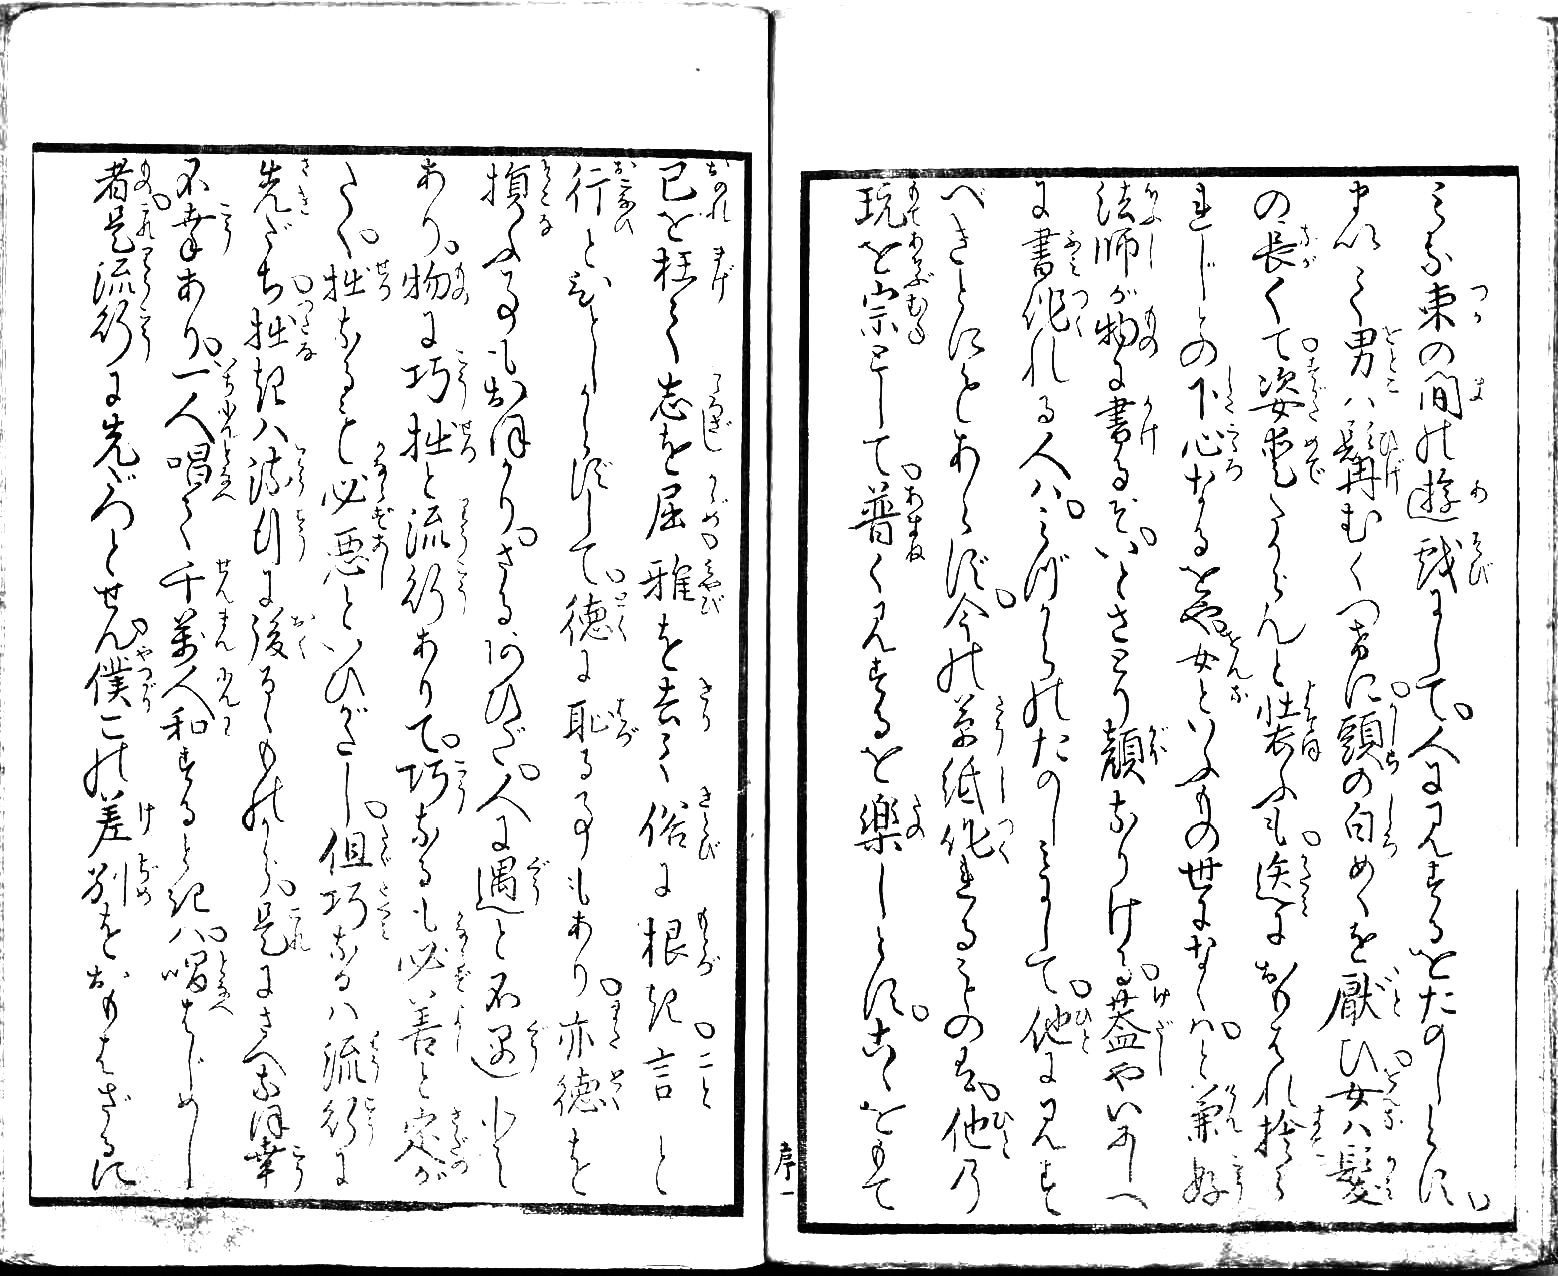 みな束の間の遊戯にして。人に見するをたのしとす。い
まいく男ハ髯冉むくつけに。頭の白めくを厭ひ。女ハ髪
の長くて。姿艶たからんと粧ふも。送におもはれ捨ら
れじとの下心なるをや。女といふもの世になくハ。と兼好
法師が物に書るぞ。いとさこり顔なりける。蓋やいにしへ
に書作れる人ハ。みづからのたのしみにして。他に見す
べきとにもあらず。今の草紙作れるもの者。他乃
玩を宗として。普く見するを楽しとす。こゝをもて
己を枉て志を屈。雅を去て俗に根き。言と
行とひとしからずして。徳に恥る事もあり。亦徳を
損ふ事もおほかり。さるあひだ。人に遇と不遇と
あり。物に巧拙と流行ありて。巧なるも必善と定が
たく。拙なるも必悪といひがたし。但巧なるハ流行に
先だち。拙きハ流行に後るゝものから。是にさへなほ幸
不幸あり。一人唱て千萬人和するとき八。唱はじめし
者。是流行に先だつとせん。僕この差別をおもはざるに
序一